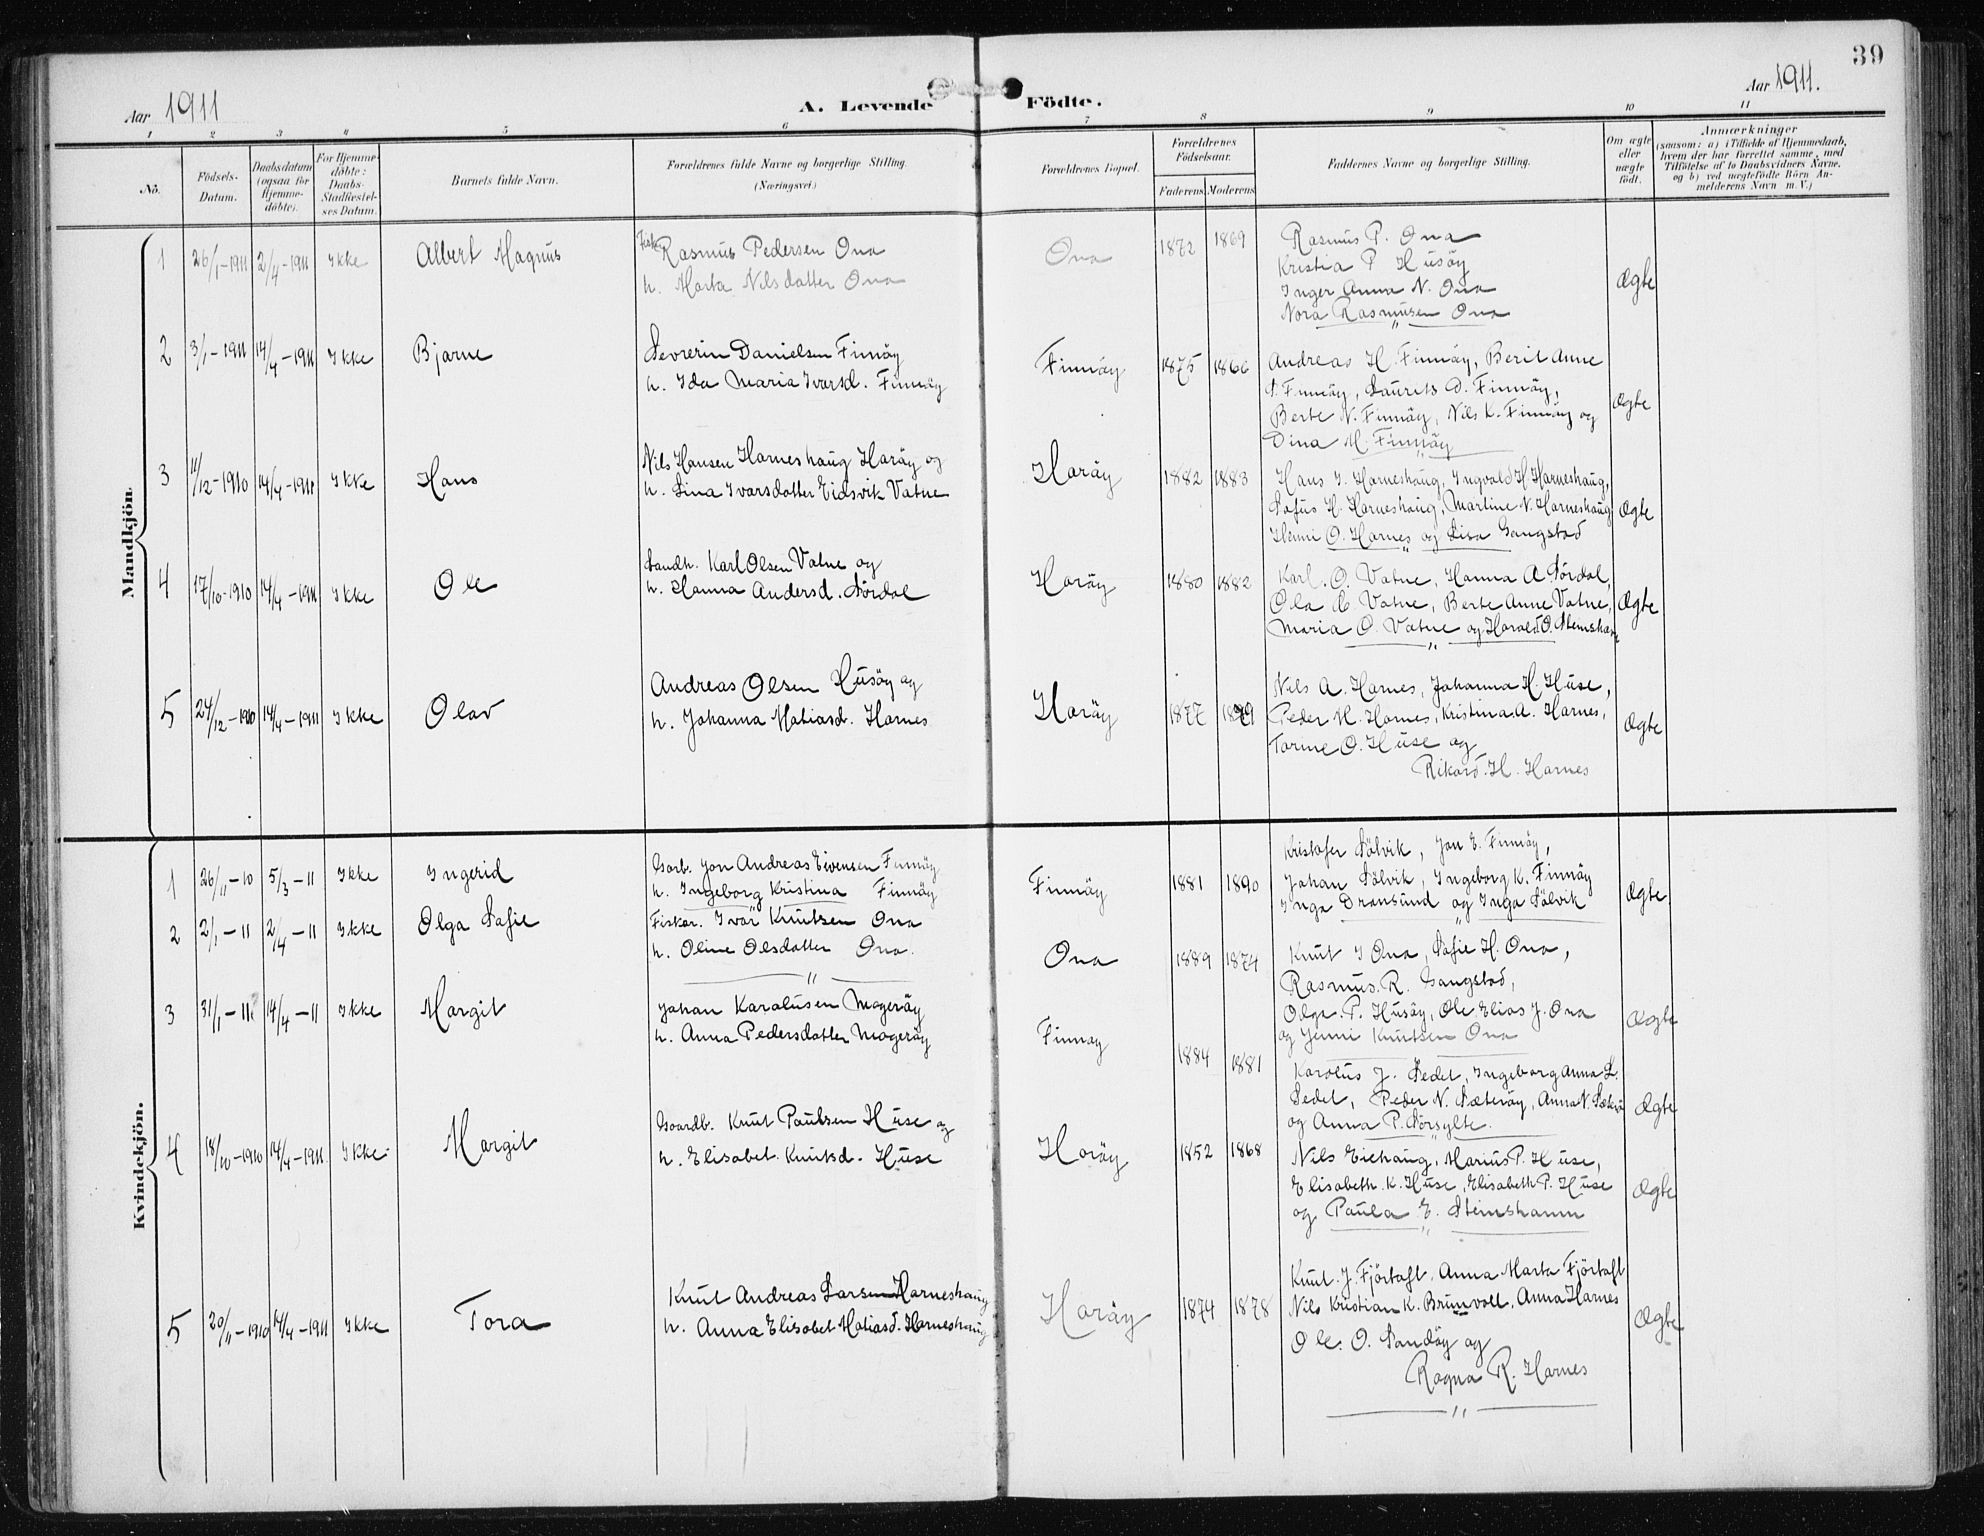 39
Aar 1911
A. Levende Födte.
Aar 1911.
1 2 3 4 5 6 7 8 9 10 11
No.
Födsels-Datum.
Daabsdatum (ogsaa for Hjemme-döbte).
For Hjemme-döbte: Daabs-Stadfæstel-ses Datum.
Barnets fulde Navn.
Forældrenes fulde Navne og borgerlige Stilling. (Næringsvei.)
Forældrenes Bopæl.
Forældrenes Födselsaar.
Faderens Moderens
Faddernes Navne og borgerlige Stilling.
Om ægte eller uægte födt.
Anmærkninger
(saasom: a) i Tilfælde af Hjemmedaab, hvem der har forrettet samme, med Tilföielse af to Daabsvidners Navne. og b) ved uægtefödte Börn An-melderens Navn m. V.)
Mandkjön.
1 26/1-1911 2/4-1911 Ikke Albert Magnus
Fisk Rasmus Pedersen Ona
h. Marta Nilsdatter Ona
Ona 1872 1869
Rasmus P. Ona
Kristia P Husöy
Inger Anna N. Ona
Nora Rasmusen Ona
Ægte
2 3/1-1911 14/4-1911 Ikke Bjarne
Sevrerin Danielsen Finnöy
h. Ida Maria Ivarsd. Finnöy
Finnöy 1875 1866
Andreas H. Finnöy, Berit Anne
S. Finnöy, Laurits D. Finnöy,
Berte N. Finnöy, Nils K. Finnöy og
Dina M. Finnöy
Ægte
3 11/12-1910 14/4-1911 Ikke Hans
Nils Hansen Harneshaug Haröy og
h. Lina Ivarsdatter Eidsvik Vatne
Haröy 1882 1883
Hans I. Harneshaug, Ingvald H. Harneshaug,
Sofus H. Harneshaug, Martine N. Harneshaug
Henni O. Harnes og Lisa Gangstad
Ægte
4 17/10-1910 14/4-1911 Ikke Ole
Landh. Karl Olsen Vatne og
h. Hanna Andersd. Sördal
Haröy 1880 1882
Karl. O. Vatne, Hanna A Sördal,
Ola C Vatne, Berte Anne Vatne,
Maria O. Vatne og Harald O. Stemshaun
Ægte
5 24/12-1910 14/4-1911 Ikke Olav
Andreas Olsen Husöy og
h. Johanna Matiasd. Harnes
Haröy 1877 1879
Nils A. Harnes, Johanna H. Huse,
Peder M. Harnes, Kristina A. Harnes,
Torine O. Huse og
Rikard. H. Harnes
Ægte
Kvindekjön.
1 26/11-10 5/3-11 Ikke Ingerid
Gaarb. Jon Andreas Eivensen Finnöy
h. Ingeborg Kristina Finnöy
Finnöy 1881 1890
Kristofer Sölvik, Jon E. Finnöy,
Johan Sölvik, Ingeborg K. Finnöy
Inga Dronsund og Inga Sölvik
Ægte
2 2/1-11 2/4-11 Ikke Olga Sofie
Fisker. Ivar Knutsen Ona
h. Oline Olsdatter Ona.
Ona 1889 1874
Knut I Ona, Sofie H. Ona,
Rasmus. R. Gangstad,
Olga. P. Husöy, Ole Elias J. Ona
og Jenni Knutsen Ona
Ægte
3 31/1-11 14/4-11 Ikke Margit
Johan Karolusen Mageröy
h. Anna Pedersdatter Mageröy
Finnøy 1884 1881
Karolus J. Sedet, Ingeborg Anna L.
Sedet, Peder N. Sæteröy, Anna N.
og Anna P. Sörsylte.
Ægte
4 18/10-1910 14/4-1911. Ikke Margit
Gaardb. Knut Paulsen Huse og
h. Elisabet Knutsd. Huse
Haröy 1852 1868
Nils Eichaug, Marius P. Huse,
Elisabeth. K. Huse, Elisabeth P. Huse
og Paula E. Stemshaun
Ægte
5 20/11-1910 14/4-1911 Ikke Tora
Knut Andreas Larsen Harneshaug
h. Anna Elisabet Matiasd. Harneshaug
Haröy 1874 1878
Knut. J. Fjörtoft, Anna Marta Fjörtoft
Nils Kristian K. Brunvoll, Anna Harnes
Ole. O. Sandöy og
Ragna R. Harnes
Ægte